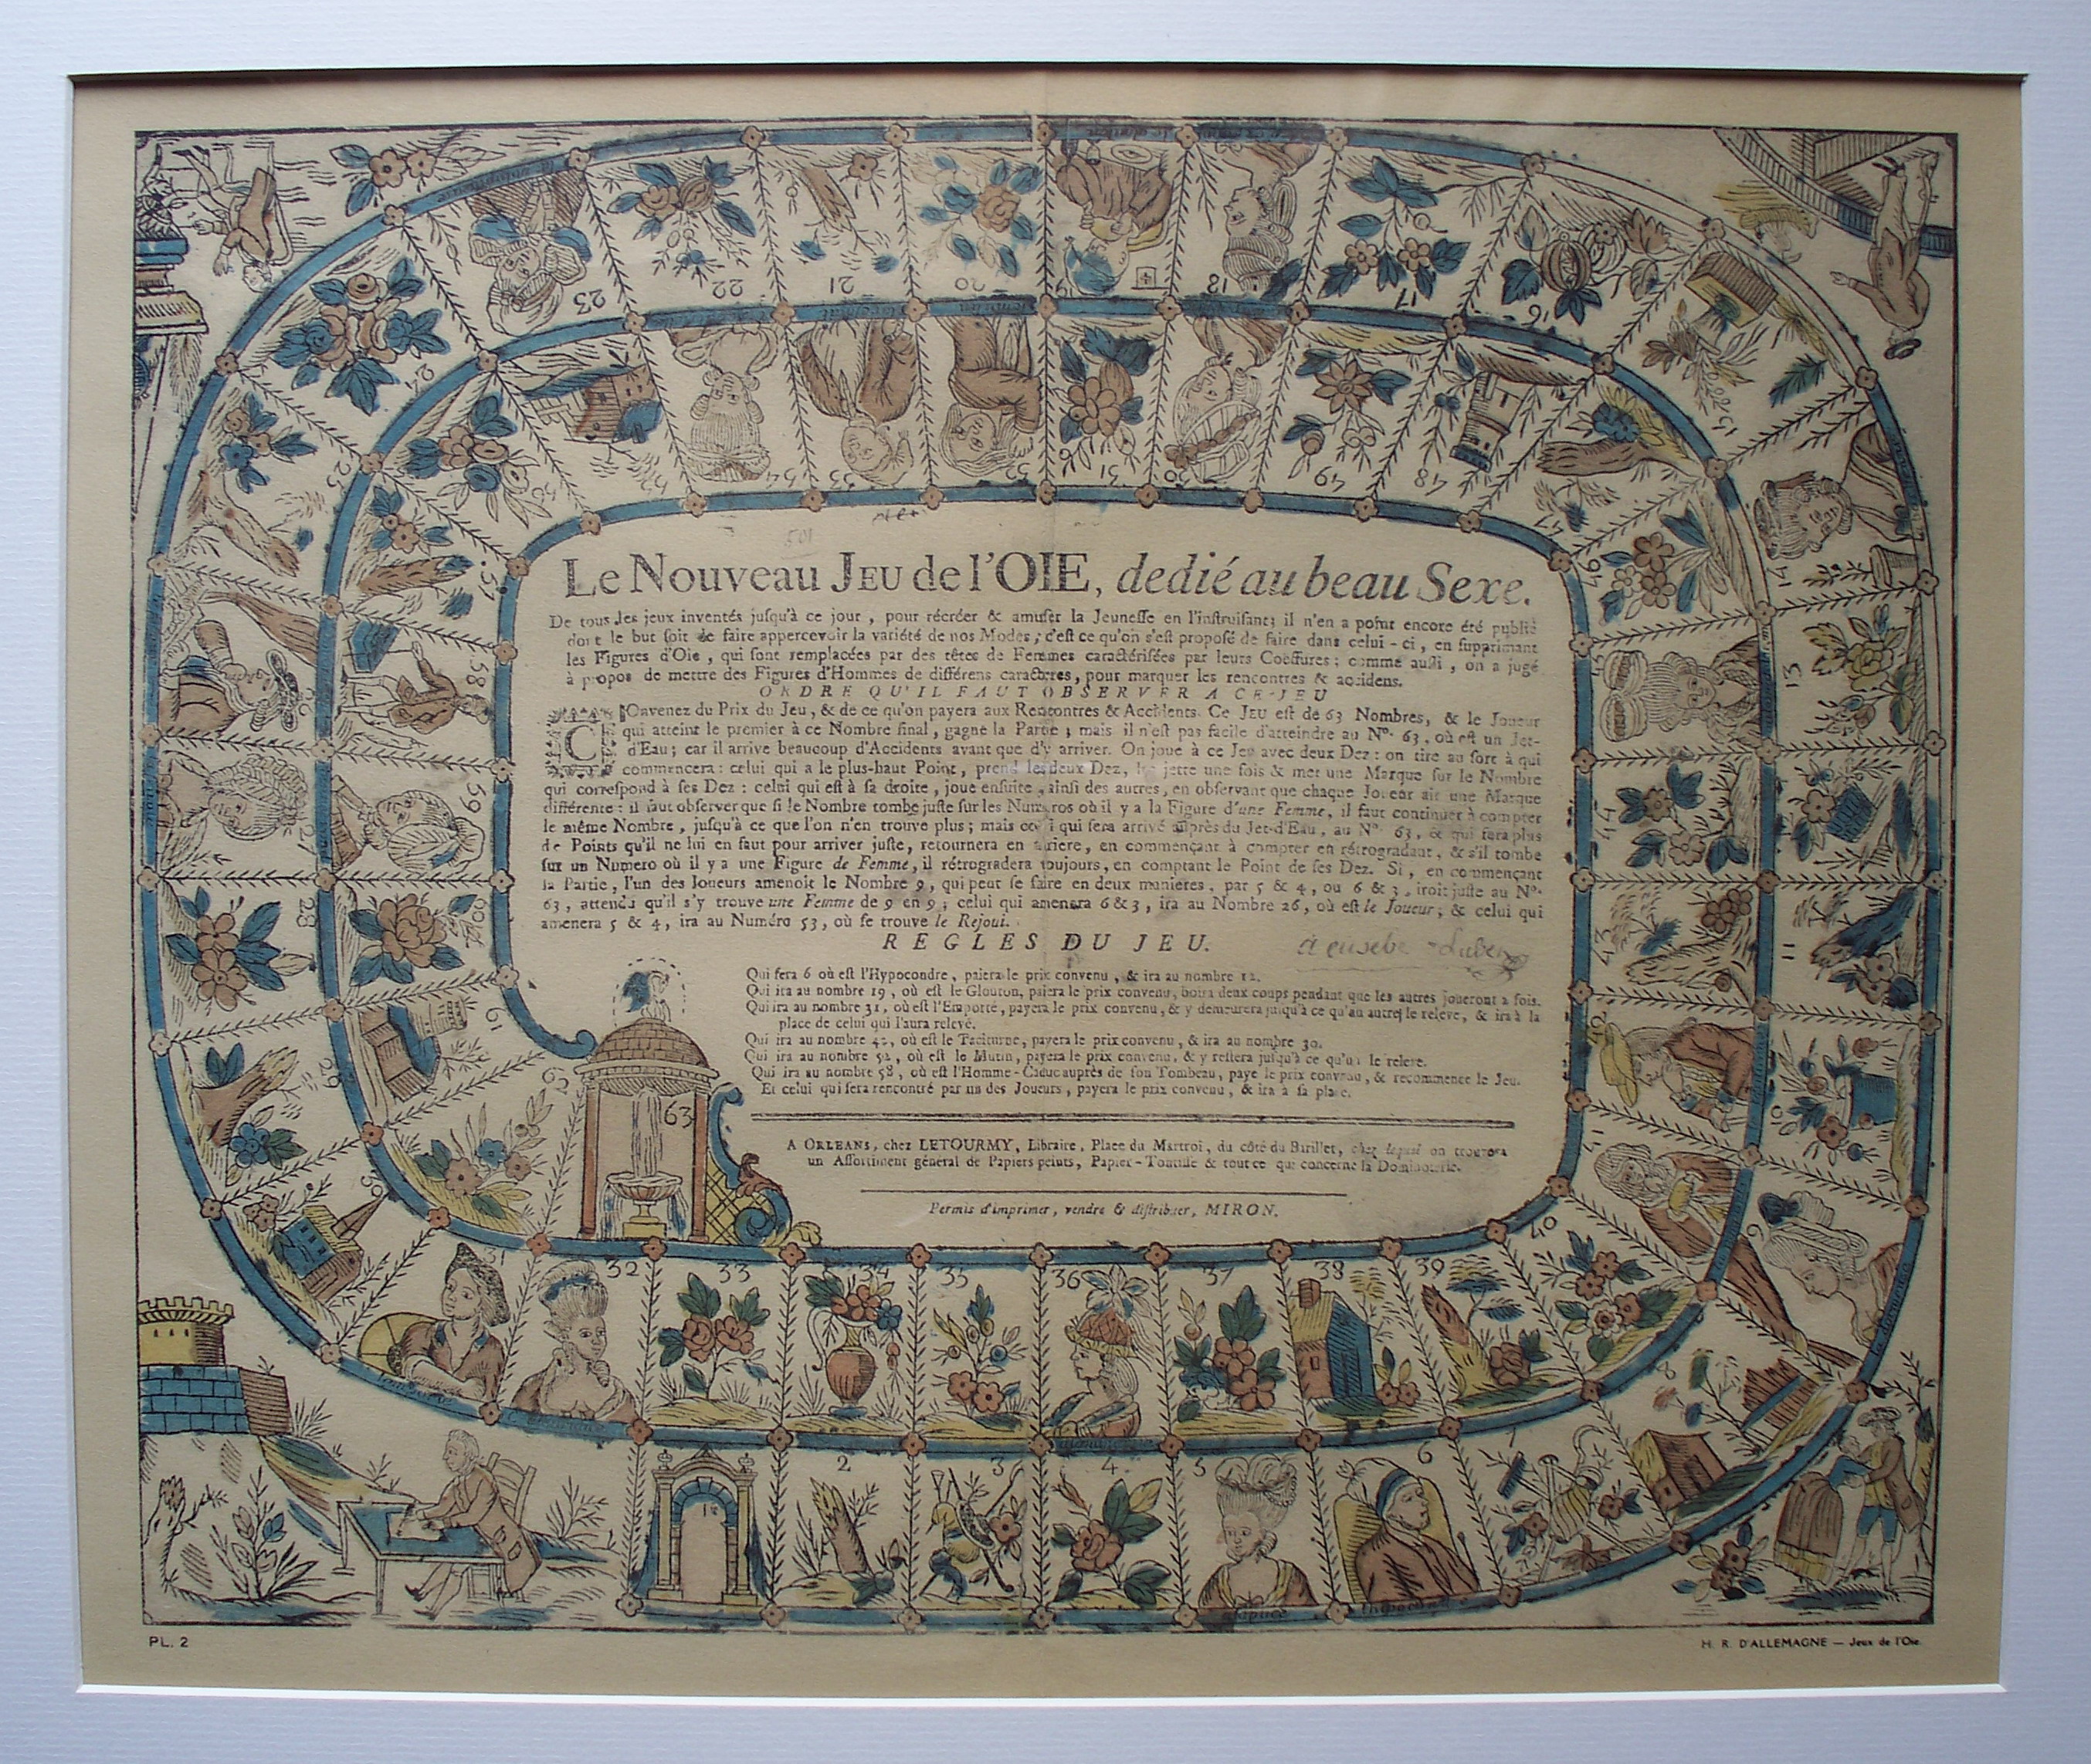 Le Nouveau Jeu de l'OIE, dedié au beau Sexe.
De tous les jeux inventés juſqu'à ce jour, pour récréer & amuſer la Jeuneſſe en l'inſtruiſant; il n'en a point encore été publié
dont le but ſoit de faire appercevoir la variété de nos Modes; c'eſt ce qu'on s'eſt propoſé de faire dans celui-ci, en ſupprimant
les Figures d'Oie, qui ſont remplacées par des têtes de Femmes caractériſées par leurs Coëffures; comme auſſi, on a jugé
à propos de mettre des Figures d'Hommes de différens caracteres, pour marquer les rencontres & accidens.
ORDRE QU'IL FAUT OBSERVER A CE JEU
COnvenez du Prix du Jeu, & de ce qu'on payera aux Rencontres & Accidents. Ce JEU eſt de 63 Nombres, & le Joueur
qui atteint le premier à ce Nombre final, gagne la Partie; mais il n'eſt pas facile d'atteindre au No. 63, où eſt un Jet-
d'Eau; car il arrive beaucoup d'Accidents avant que d'y arriver. On joue à ce Jeu avec deux Dez: on tire au ſort à qui
commencera: celui qui a le plus-haut Point, prend les deux Dez, les jette une fois & met une Marque ſur le Nombre
qui correſpond à ſes Dez: celui qui eſt à ſa droite, joue enſuite, ainſi des autres, en obſervant que chaque Joueur ait une Marque
différente: il faut obſerver que ſi le Nombre tombe juſte ſur les Numeros où il y a la Figure d'une Femme, il faut continuer à compter
le même Nombre, juſqu'à ce que l'on n'en trouve plus; mais celui qui ſera arrivé auprès du Jet-d'Eau, au No. 63, & qui fera plus
de Points qu'il ne lui en faut pour arriver juſte, retournera en arriere, en commençant à compter en rétrogradant, & s'il tombe
ſur un Numero où il y a une Figure de Femme, il rétrogradera toujours, en comptant le Point de ſes Dez. Si, en commençant
la Partie, l'un des Joueurs amenoit le Nombre 9, qui peut ſe faire en deux manieres, par 5 & 4, ou 6 & 3, iroit juſte au No.
63, attendu qu'il s'y trouve une Femme de 9 en 9; celui qui amenera 6 & 3, ira au Nombre 26, où eſt le Joueur; & celui qui
amenera 5 & 4, ira au Numéro 53, où ſe trouve le Rejoui.
REGLES DU JEU.
Qui fera 6 où eſt l'Hypocondre, paiera le prix convenu, & ira au nombre 12.
Qui ira au nombre 19, où eſt le Glouton, paiera le prix convenu, boira deux coups pendant que les autres joueront 2 fois.
Qui ira au nombre 31, où eſt l'Emporté, payera le prix convenu, & y demeurera juſqu'à ce qu'un autre le releve, & ira à la
place de celui qui l'aura relevé.
Qui ira au nombre 42, où eſt le Taciturne, payera le prix convenu, & ira au nombre 30.
Qui ira au nombre 52, où eſt le Mutin, payera le prix convenu, & y reſtera juſqu'à ce qu'on le releve.
Qui ira au nombre 58, où eſt l'Homme-Caduc auprès de ſon Tombeau, paye le prix convenu, & recommence le Jeu.
Et celui qui ſera rencontré par un des Joueurs, payera le prix convenu, & ira à ſa place.
A ORLEANS, chez LETOURMY, Libraire, Place du Martroi, du côté du Barillet, chez lequel on trouvera
un Aſſortiment général de Papiers peints, Papier-Tontiſſe & tout ce qui concerne la Dominoterie.
Permis d'imprimer, vendre & diſtribuer, MIRON.
2
3
4
5
6
7
8
9
11
13
14
15
16
17
18
19
20
21
22
23
24
25
27
28
29
30
31
32
33
34
35
36
37
38
39
40
41
42
43
44
45
46
47
48
49
50
51
52
53
54
55
56
57
58
59
60
61
62
63
PL. 2
H. R. D'ALLEMAGNE — Jeux de l'Oie.